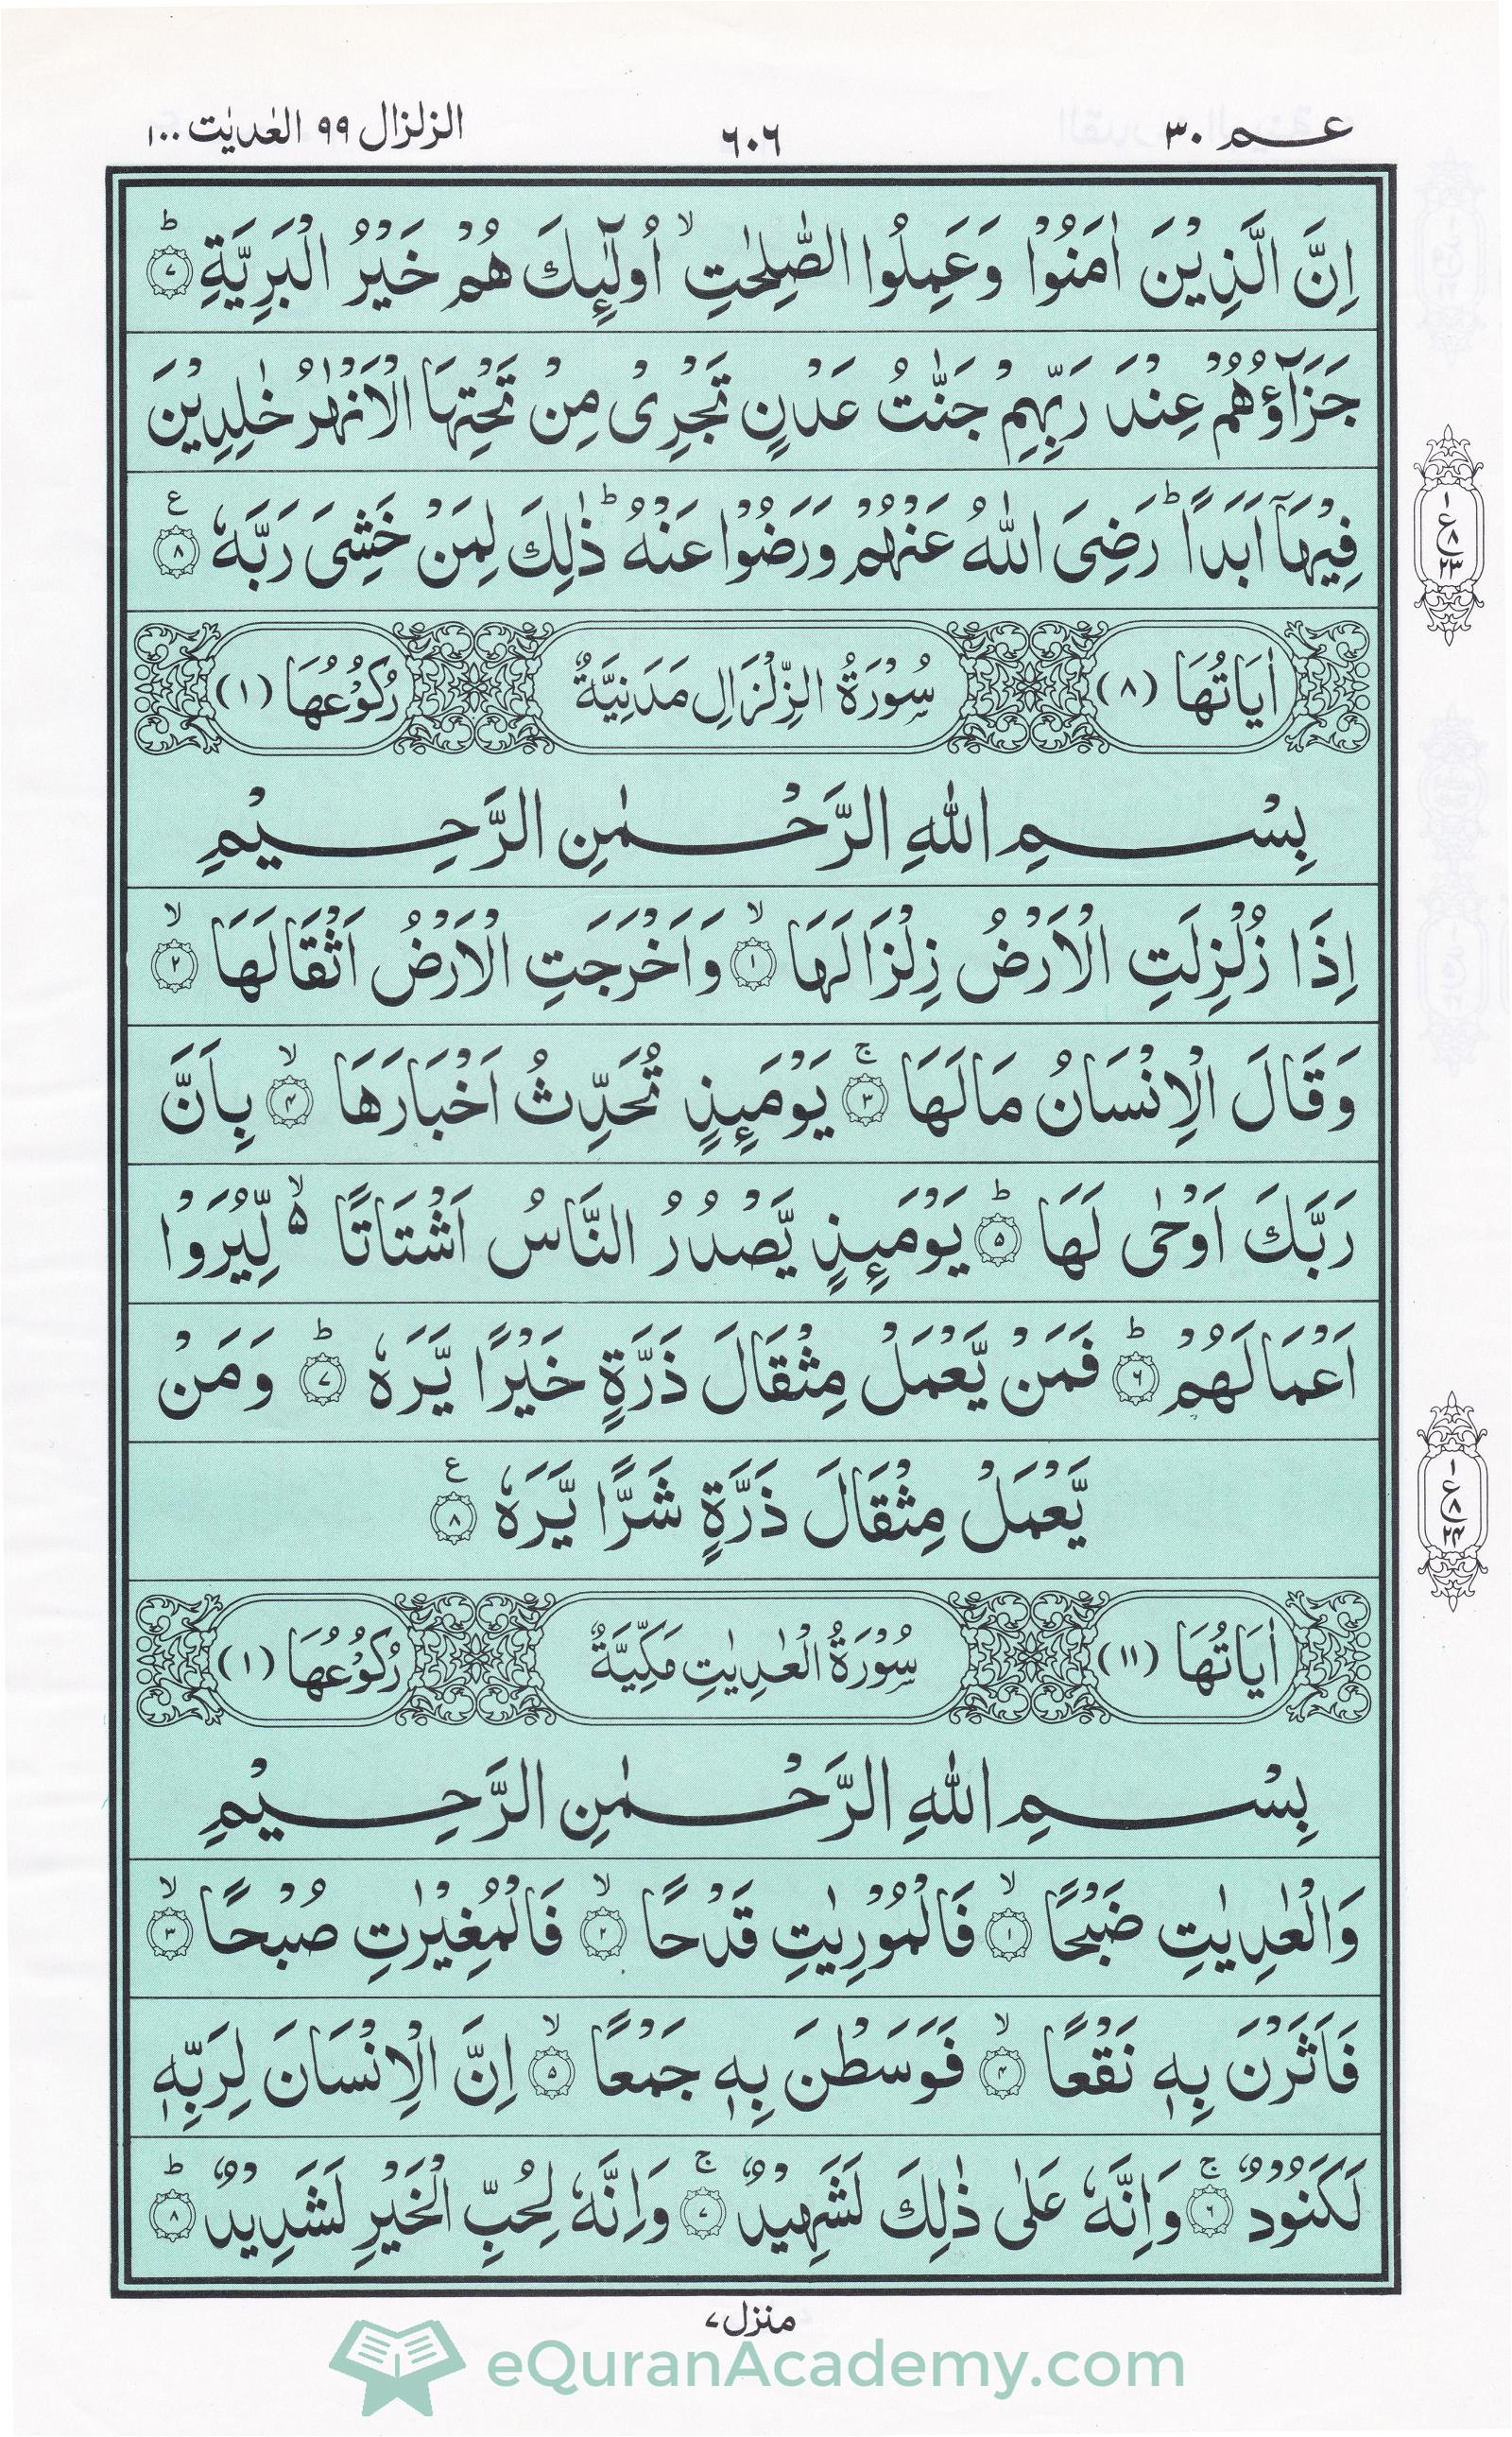 عـم ٣٠
٦٠٦
الزلزال ٩٩ العٰديٰت ١٠٠
اِنَّ الَّذِيْنَ اٰمَنُوْا وَعَمِلُوا الصّٰلِحٰتِ ۙ اُولٰٓئِكَ هُمْ خَيْرُ الْبَرِيَّةِ ؕ ٧
جَزَآؤُهُمْ عِنْدَ رَبِّهِمْ جَنّٰتُ عَدْنٍ تَجْرِىْ مِنْ تَحْتِهَا الْاَنْهٰرُ خٰلِدِيْنَ
فِيْهَاۤ اَبَدًا ؕ رَضِىَ اللّٰهُ عَنْهُمْ وَرَضُوْا عَنْهُ ؕ ذٰلِكَ لِمَنْ خَشِىَ رَبَّهٗ ٨ ع
١ ع ٨ ٢٣
اٰيَاتُهَا (٨) سُوْرَةُ الزِّلْزَالِ مَدَنِيَّةٌ رُكُوْعُهَا (١)
بِسْمِ اللّٰهِ الرَّحْمٰنِ الرَّحِيْمِ
اِذَا زُلْزِلَتِ الْاَرْضُ زِلْزَالَهَا ۙ ١ وَاَخْرَجَتِ الْاَرْضُ اَثْقَالَهَا ۙ ٢
وَقَالَ الْاِنْسَانُ مَالَهَا ۚ ٣ يَوْمَئِذٍ تُحَدِّثُ اَخْبَارَهَا ۙ ٤ بِاَنَّ
رَبَّكَ اَوْحٰى لَهَا ؕ ٥ يَوْمَئِذٍ يَّصْدُرُ النَّاسُ اَشْتَاتًا ۙ۵ لِّيُرَوْا
اَعْمَالَهُمْ ؕ ٦ فَمَنْ يَّعْمَلْ مِثْقَالَ ذَرَّةٍ خَيْرًا يَّرَهٗ ؕ ٧ وَمَنْ
يَّعْمَلْ مِثْقَالَ ذَرَّةٍ شَرًّا يَّرَهٗ ٨ ع
١ ع ٨ ٢٤
اٰيَاتُهَا (١١) سُوْرَةُ الْعٰدِيٰتِ مَكِّيَّةٌ رُكُوْعُهَا (١)
بِسْمِ اللّٰهِ الرَّحْمٰنِ الرَّحِيْمِ
وَالْعٰدِيٰتِ ضَبْحًا ۙ ١ فَالْمُوْرِيٰتِ قَدْحًا ۙ ٢ فَالْمُغِيْرٰتِ صُبْحًا ۙ ٣
فَاَثَرْنَ بِهٖ نَقْعًا ۙ ٤ فَوَسَطْنَ بِهٖ جَمْعًا ۙ ٥ اِنَّ الْاِنْسَانَ لِرَبِّهٖ
لَكَنُوْدٌ ۚ ٦ وَاِنَّهٗ عَلٰى ذٰلِكَ لَشَهِيْدٌ ۚ ٧ وَاِنَّهٗ لِحُبِّ الْخَيْرِ لَشَدِيْدٌ ؕ ٨
منزل ٧
eQuranAcademy.com